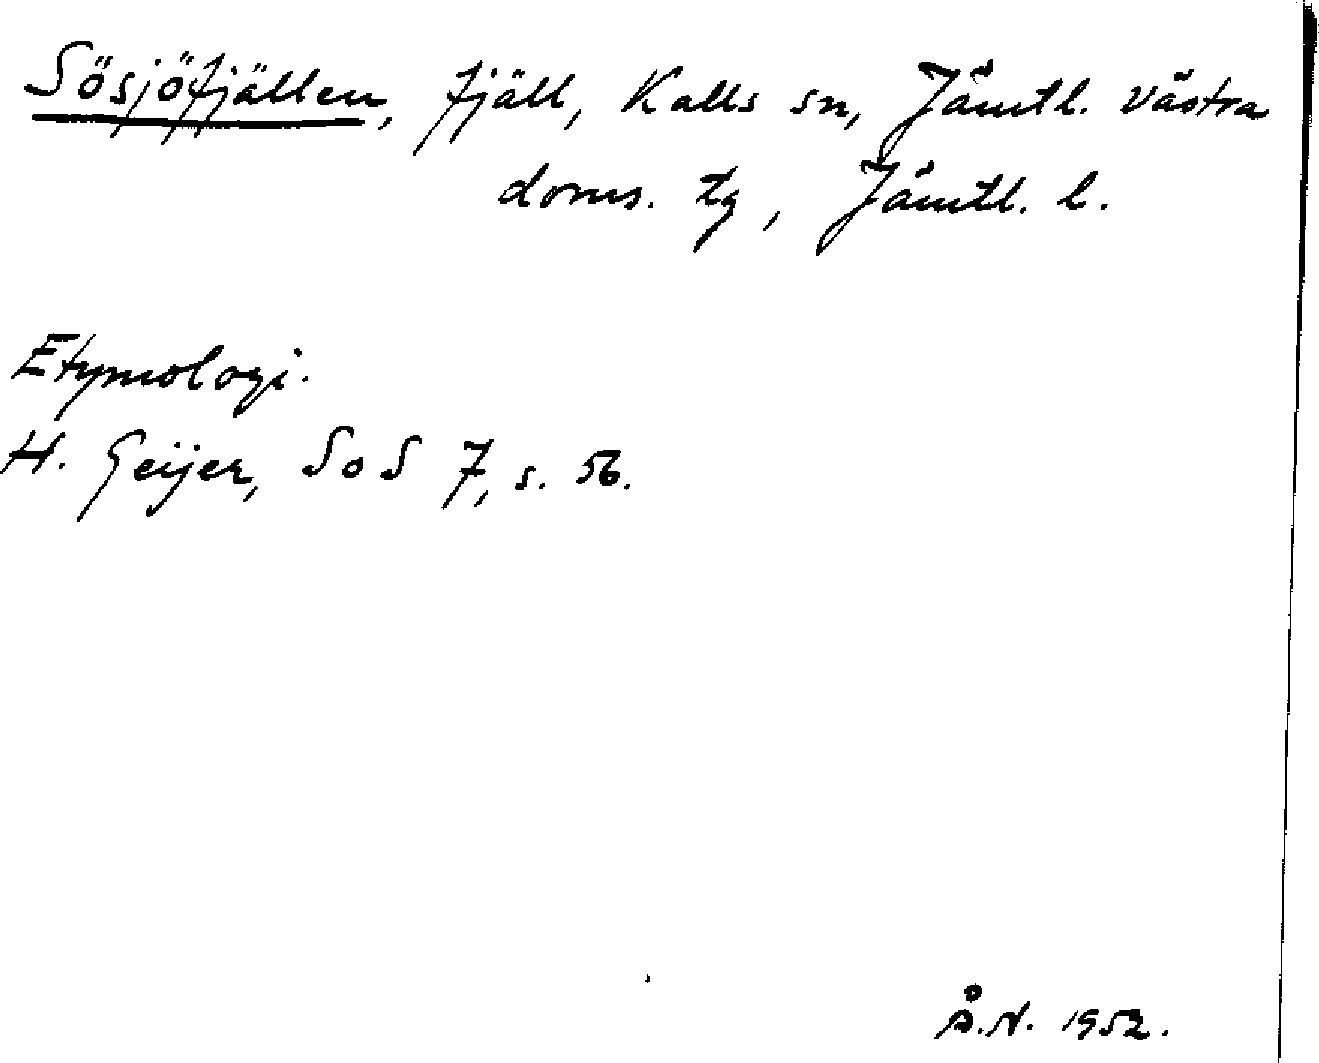 Sösjöfjällen, fjäll, Kalls sn, Jämtl. västra
doms. tg, Jämtl. l.
Etymologi.
H. Geijer, SoS 7, s. 56.
Å.N. 1952.